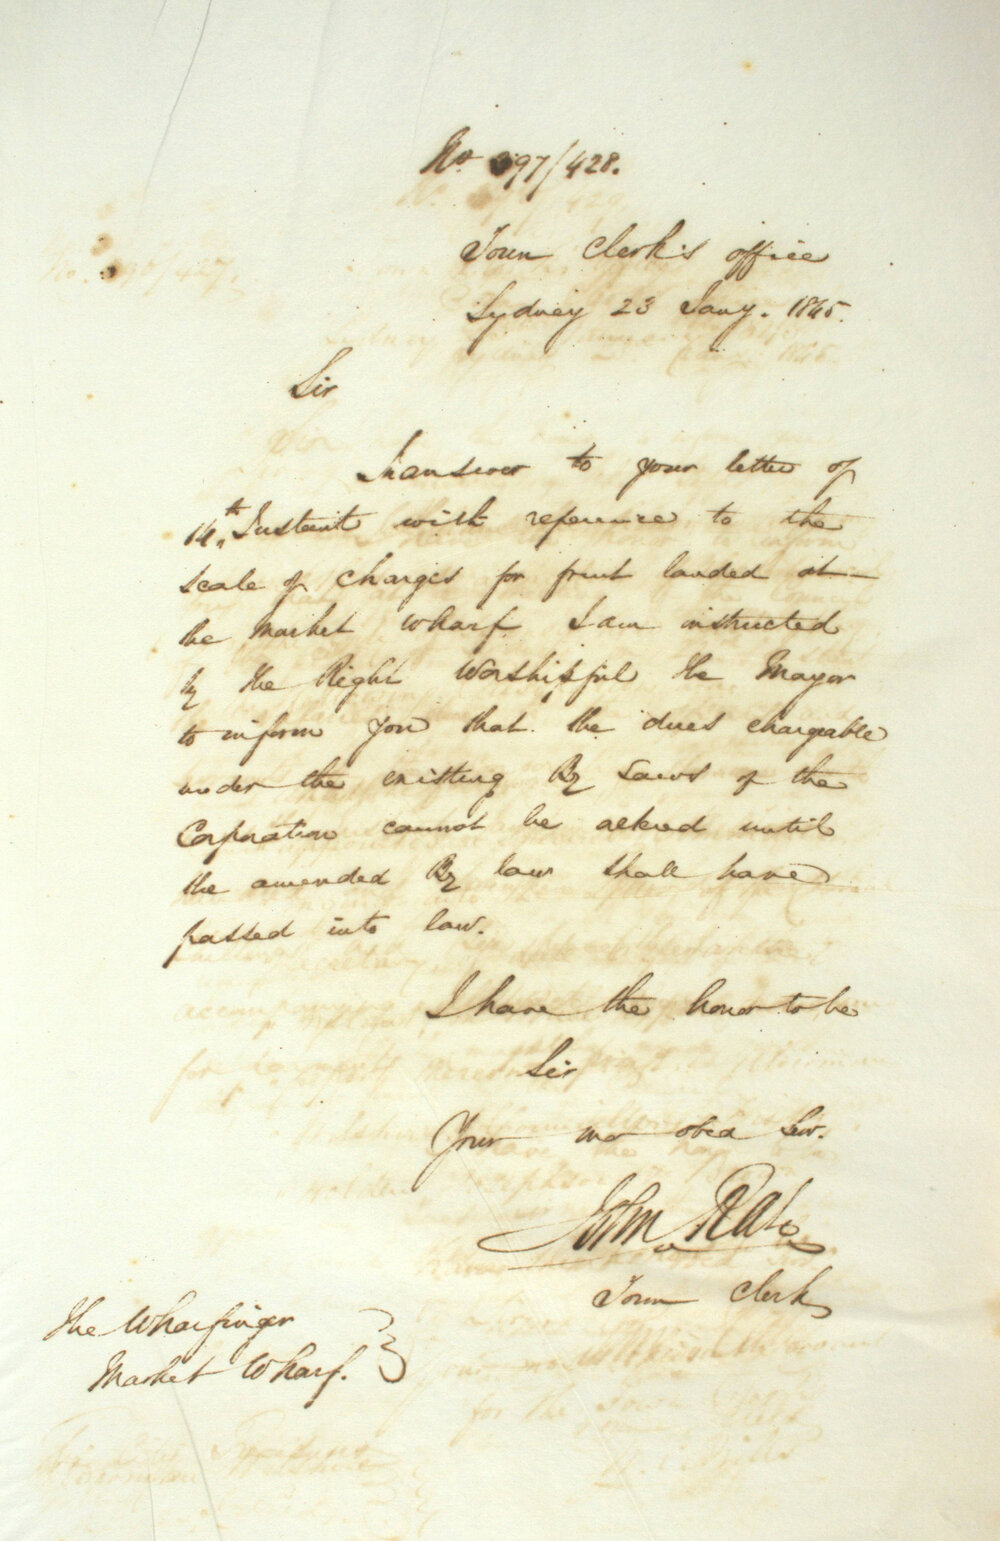 No. 397/428.
Town Clerk's office
Sydney 23 Jany. 1845.
Sir
In answer to your letter of
14th Instant with reference to the
scale of charges for fruit landed at
the Market Wharf I am instructed
by the Right Worshipful the Mayor
to inform you that the dues chargeable
under the existing By Laws of the
Corporation cannot be altered until
the amended By law shall have
passed into law.
I have the honor to be
Sir
Your mo obed Ser.
John Rae
Town Clerk
The Wharfinger
Market Wharf.